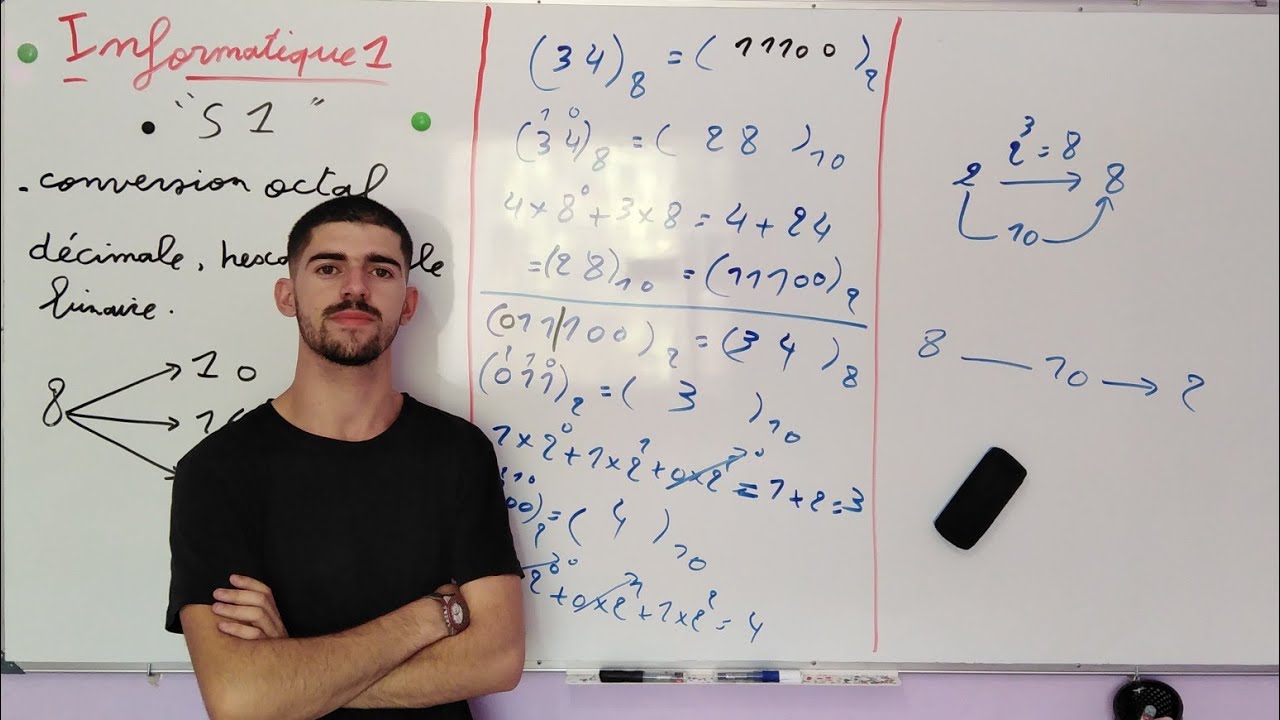 Informatique 1
"S1"
- conversion octal
décimale,
binaire.
8
10
(34)₈ = (11100)₂
1 0
(34)₈ = (28)₁₀
4×8⁰+3×8 = 4+24
=(28)₁₀ = (11100)₂
(011/100)₂ = (34)₈
(011)₂ = (3)₁₀
1×2⁰+1×2¹+0×2² = 1+2=3
00)₂ = (4)₁₀
+0×2¹+1×2² = 4
2³=8
2 → 8
10
8 — 10 → 2